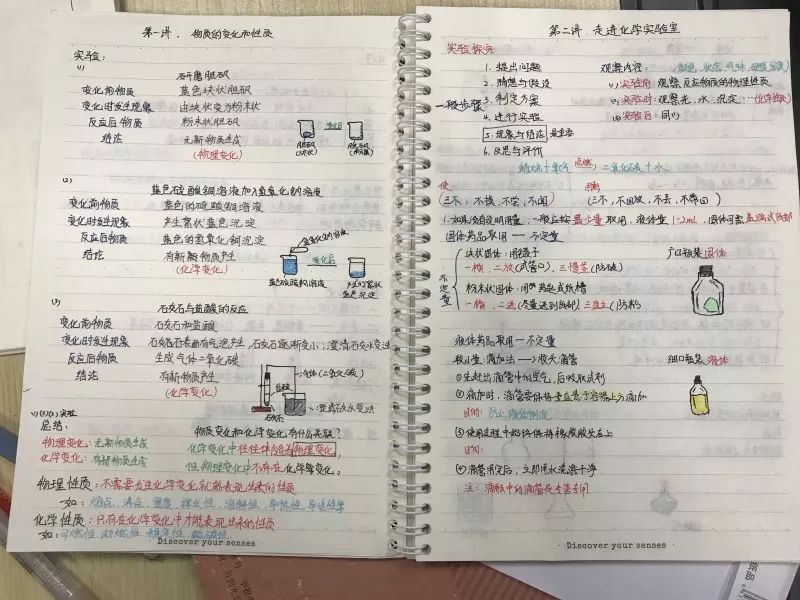 第一讲. 物质的变化和性质
实验:
(1) 研磨胆矾
变化前物质 蓝色块状胆矾
变化时发生现象 由块状变为粉末状
反应后物质 粉末状胆矾
结论 无新物质生成
(物理变化)
(2)
蓝色硫酸铜溶液加入氢氧化钠溶液
变化前物质 蓝色的硫酸铜溶液
变化时发生现象 产生絮状蓝色沉淀
反应后物质 蓝色的氢氧化铜沉淀
结论 有新新物质产生
(化学变化)
氢氧化钠溶液
变化后
蓝色硫酸铜溶液
蓝色沉淀
(3)
石灰石与盐酸的反应
变化前物质 石灰石和盐酸
变化时发生现象 石灰石表面有气泡产生,石灰石逐渐变小;澄清石灰水变浊
反应后物质 生成气体二氧化碳
结论 有新物质产生
(化学变化)
气体(二氧化碳)
盐酸
石灰石
澄清石灰水变浊
(1)(2)(3)实验
总结: 物质变化和化学变化有什么关联?
物理变化:无新物质生成 化学变化中往往伴随着物理变化,
化学变化:有新物质生成 但物理变化中不存在化学变化;
物理性质:不需要发生化学变化就能表现出来的性质
如:熔点、沸点、密度、挥发性、溶解性、导热性、导电性等
化学性质:只有在化学变化中才能表现出来的性质
如:可燃性、助燃性、稳定性、
Discover your senses
第二讲. 走进化学实验室
实验探究
一般步骤
1. 提出问题
2. 猜想与假设
3. 制定方案
4. 进行实验
5. 现象与结论 最重要
6. 反思与评价
观察内容: (颜色、状态、气味、硬度、密度)
(1)实验前:观察反应物质的物理性质
(2)实验时:观察光、水、沉淀…(化学性质)
(3)实验后:同(1)
蜡烛+氧气 点燃 二氧化碳+水
(三不:不摸、不尝、不闻) (三不,不回放、不丢、不带回)
1.如果没有说明用量,一般应按最少量取用,液体量1-2mL,固体只需盖满试管底部
固体药品取用 — 不定量
不定量
块状固体:用镊子
一横、二放(试管口)、三慢竖(防破)
粉末状固体:用药匙或纸槽
一横、二送(尽量送到底部)三直立(防粘)
广口瓶装固体
液体药品取用 — 不定量
较少量:滴加法 —→胶头滴管
①先赶出滴管中的空气,后吸取试剂
②滴加时,滴管要保持垂直悬于容器上方滴加
目的:防止滴管倒流
③使用过程中始终保持橡胶胶头在上
目的:
④滴管用完后,立即用水洗涤干净
注:滴瓶中的滴管是专管专用
细口瓶装液体
Discover your senses